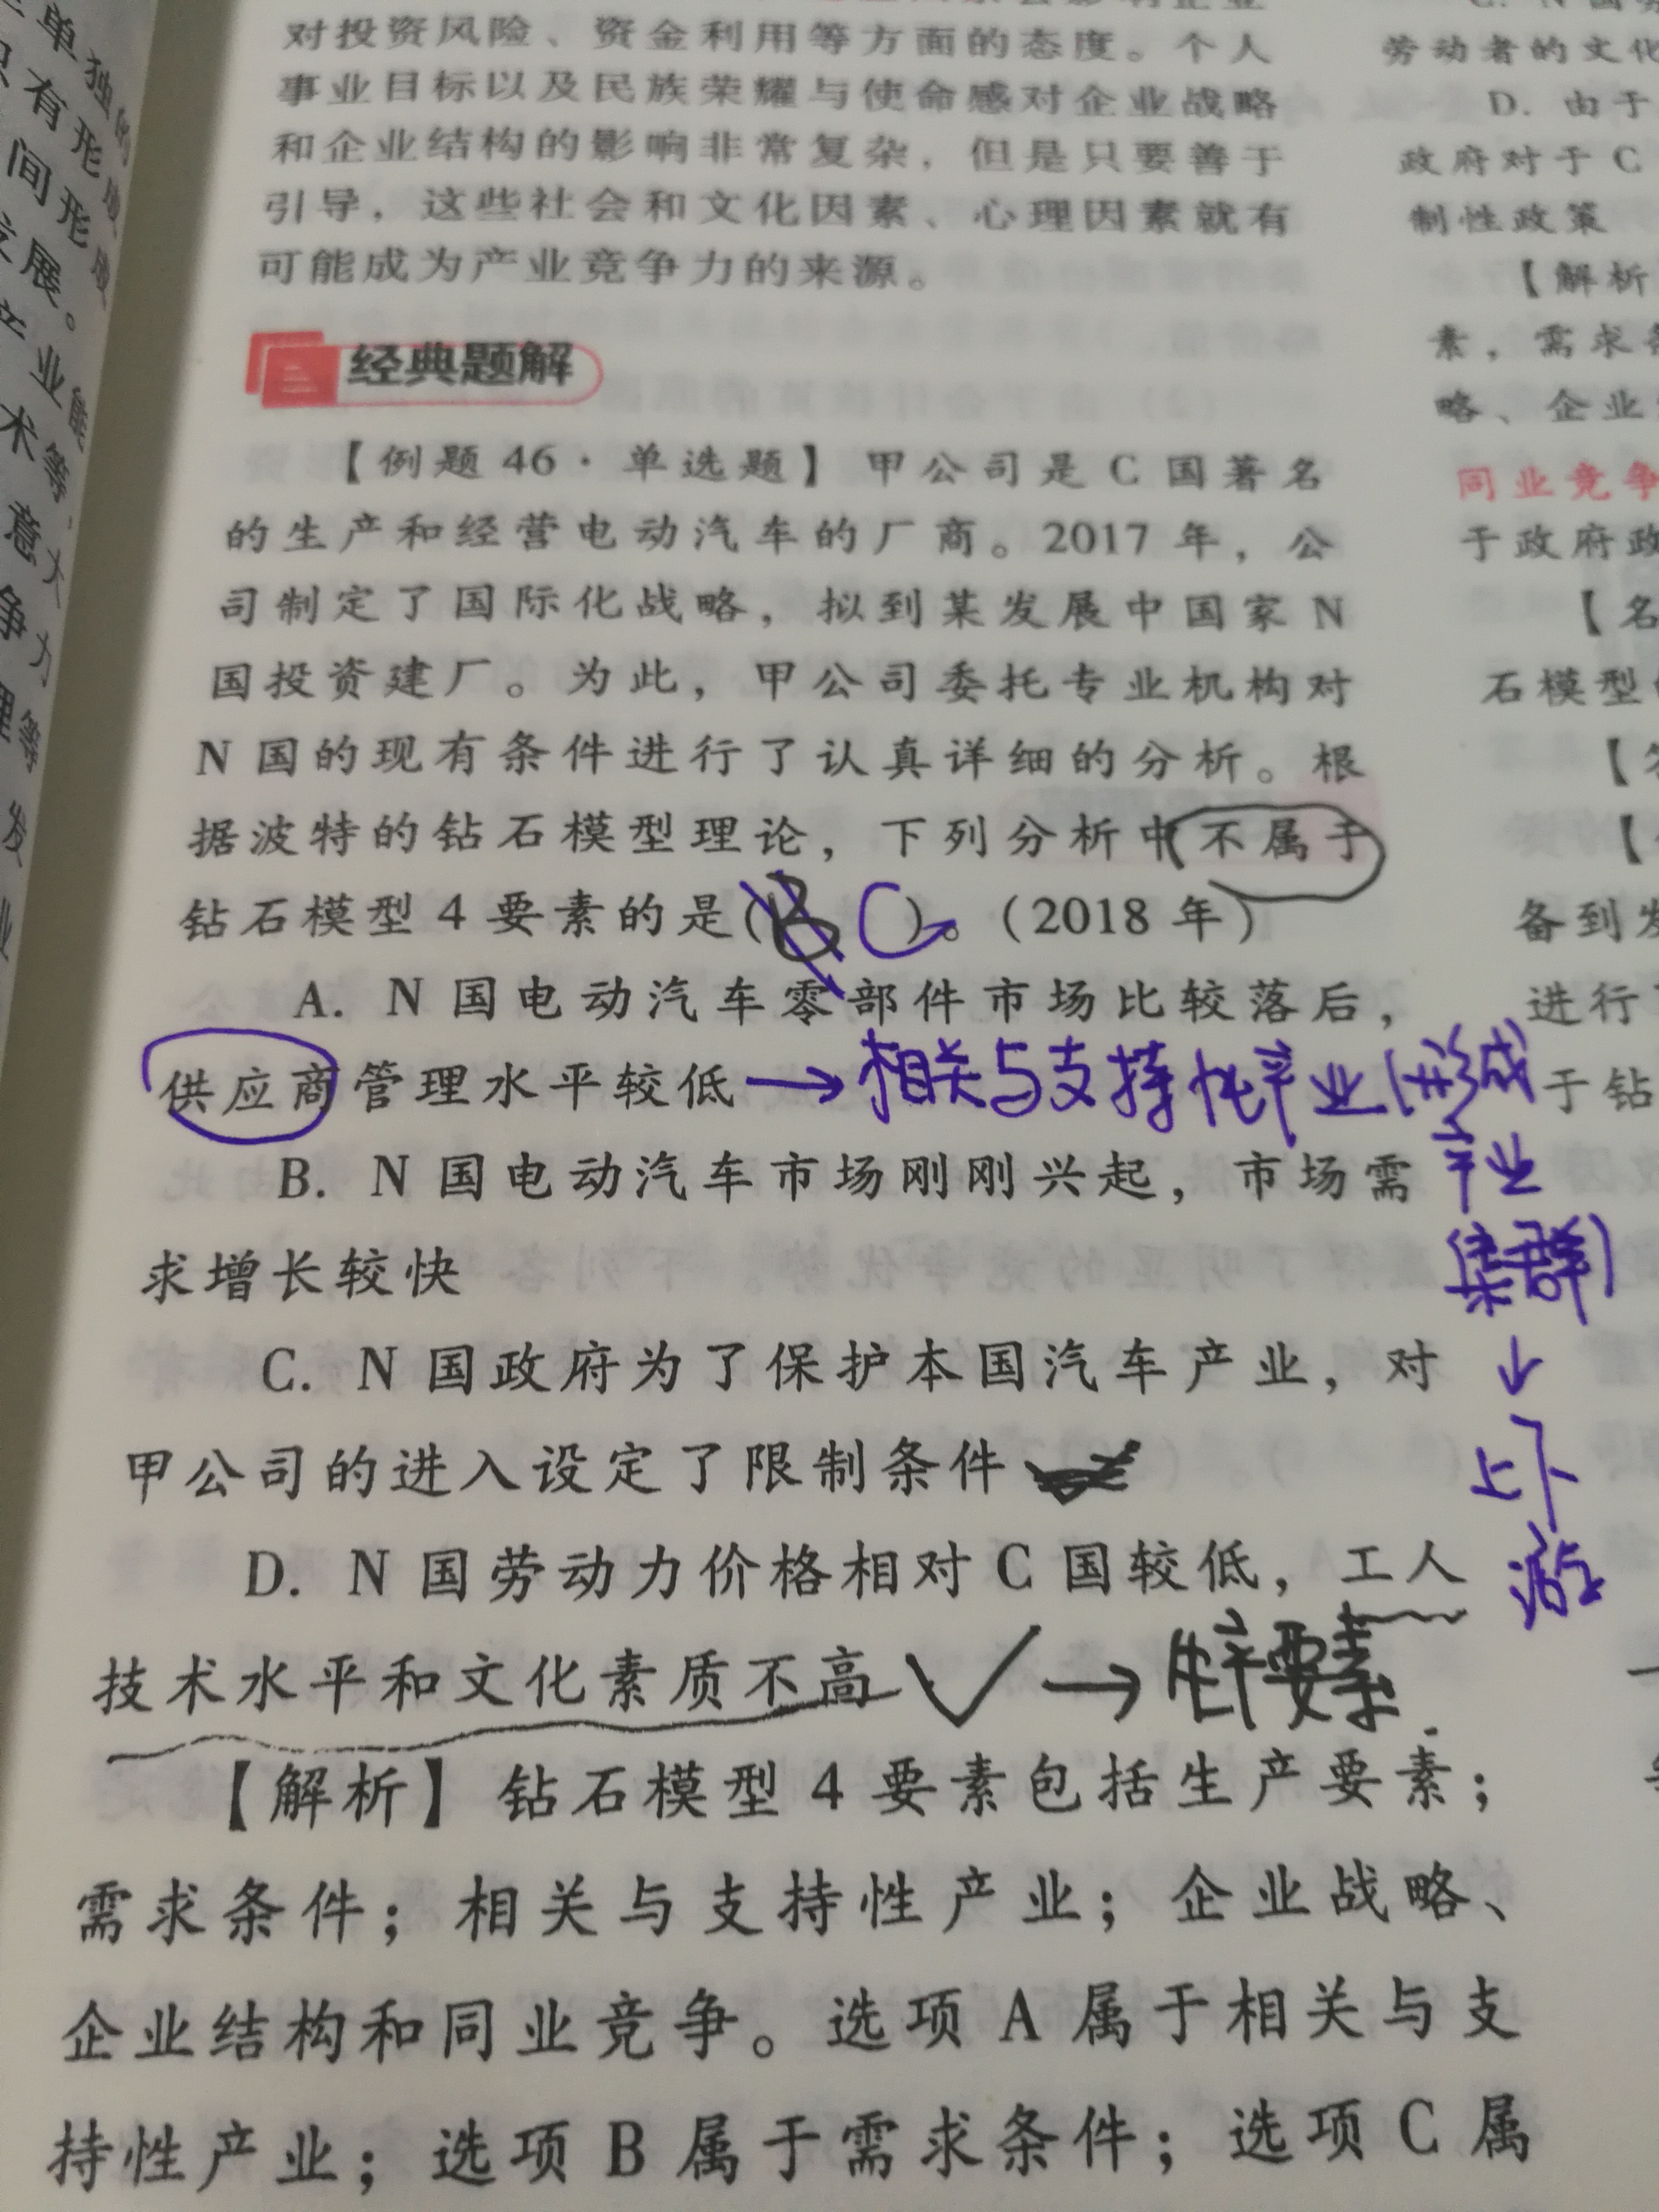 对投资风险、资金利用等方面的态度。个人
事业目标以及民族荣耀与使命感对企业战略
和企业结构的影响非常复杂，但是只要善于
引导，这些社会和文化因素、心理因素就有
可能成为产业竞争力的来源。
经典题解
【例题 46·单选题】甲公司是 C 国著名
的生产和经营电动汽车的厂商。2017 年，公
司制定了国际化战略，拟到某发展中国家 N
国投资建厂。为此，甲公司委托专业机构对
N 国的现有条件进行了认真详细的分析。根
据波特的钻石模型理论，下列分析中不属于
钻石模型 4 要素的是(B C)。（2018 年）
A. N 国电动汽车零部件市场比较落后，
供应商管理水平较低→相关与支持性产业(形成
产业
集群)
↓
上下
游
B. N 国电动汽车市场刚刚兴起，市场需
求增长较快
C. N 国政府为了保护本国汽车产业，对
甲公司的进入设定了限制条件
D. N 国劳动力价格相对 C 国较低，工人
技术水平和文化素质不高 ✓→生产要素.
【解析】钻石模型 4 要素包括生产要素；
需求条件；相关与支持性产业；企业战略、
企业结构和同业竞争。选项 A 属于相关与支
持性产业；选项 B 属于需求条件；选项 C 属
劳动者的文化
D. 由于
政府对于 C
制性政策
【解析
素，需求条
略、企业
同业竞争
于政府政
【名
石模型
备到发
进行
于钻
单独的
有形成
间形成
发展。
产业能
术等，
意大
争力
理等
发
业